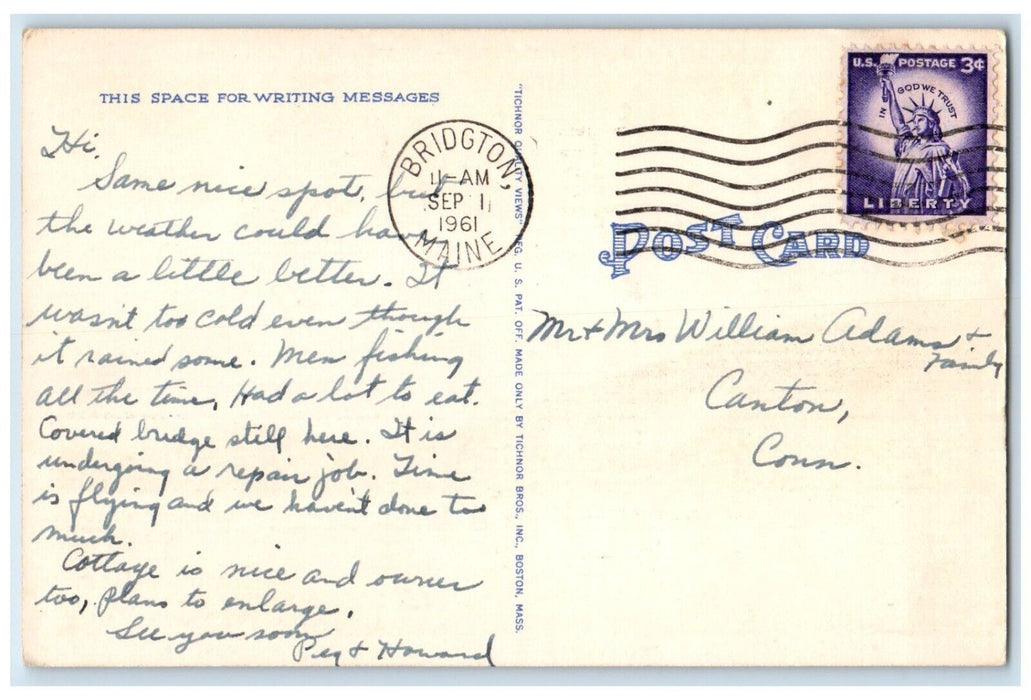 THIS SPACE FOR WRITING MESSAGES
Hi,
Same nice spot, but
the weather could have
been a little better. It
wasn't too cold even though
it rained some. Men fishing
all the time, Had a lot to eat.
Covered bridge still here. It is
undergoing a repair job. Time
is flying and we haven't done too
much.
Cottage is nice and owner
too, plans to enlarge.
See you soon
Peg & Howard
"TICHNOR QUALITY VIEWS" REG. U. S. PAT. OFF. MADE ONLY BY TICHNOR BROS., INC., BOSTON, MASS.
BRIDGTON,
11-AM
SEP 11
1961
MAINE
U.S. POSTAGE 3¢
IN GOD WE TRUST
LIBERTY
POST CARD
Mr & Mrs William Adams &
Family
Canton,
Conn.